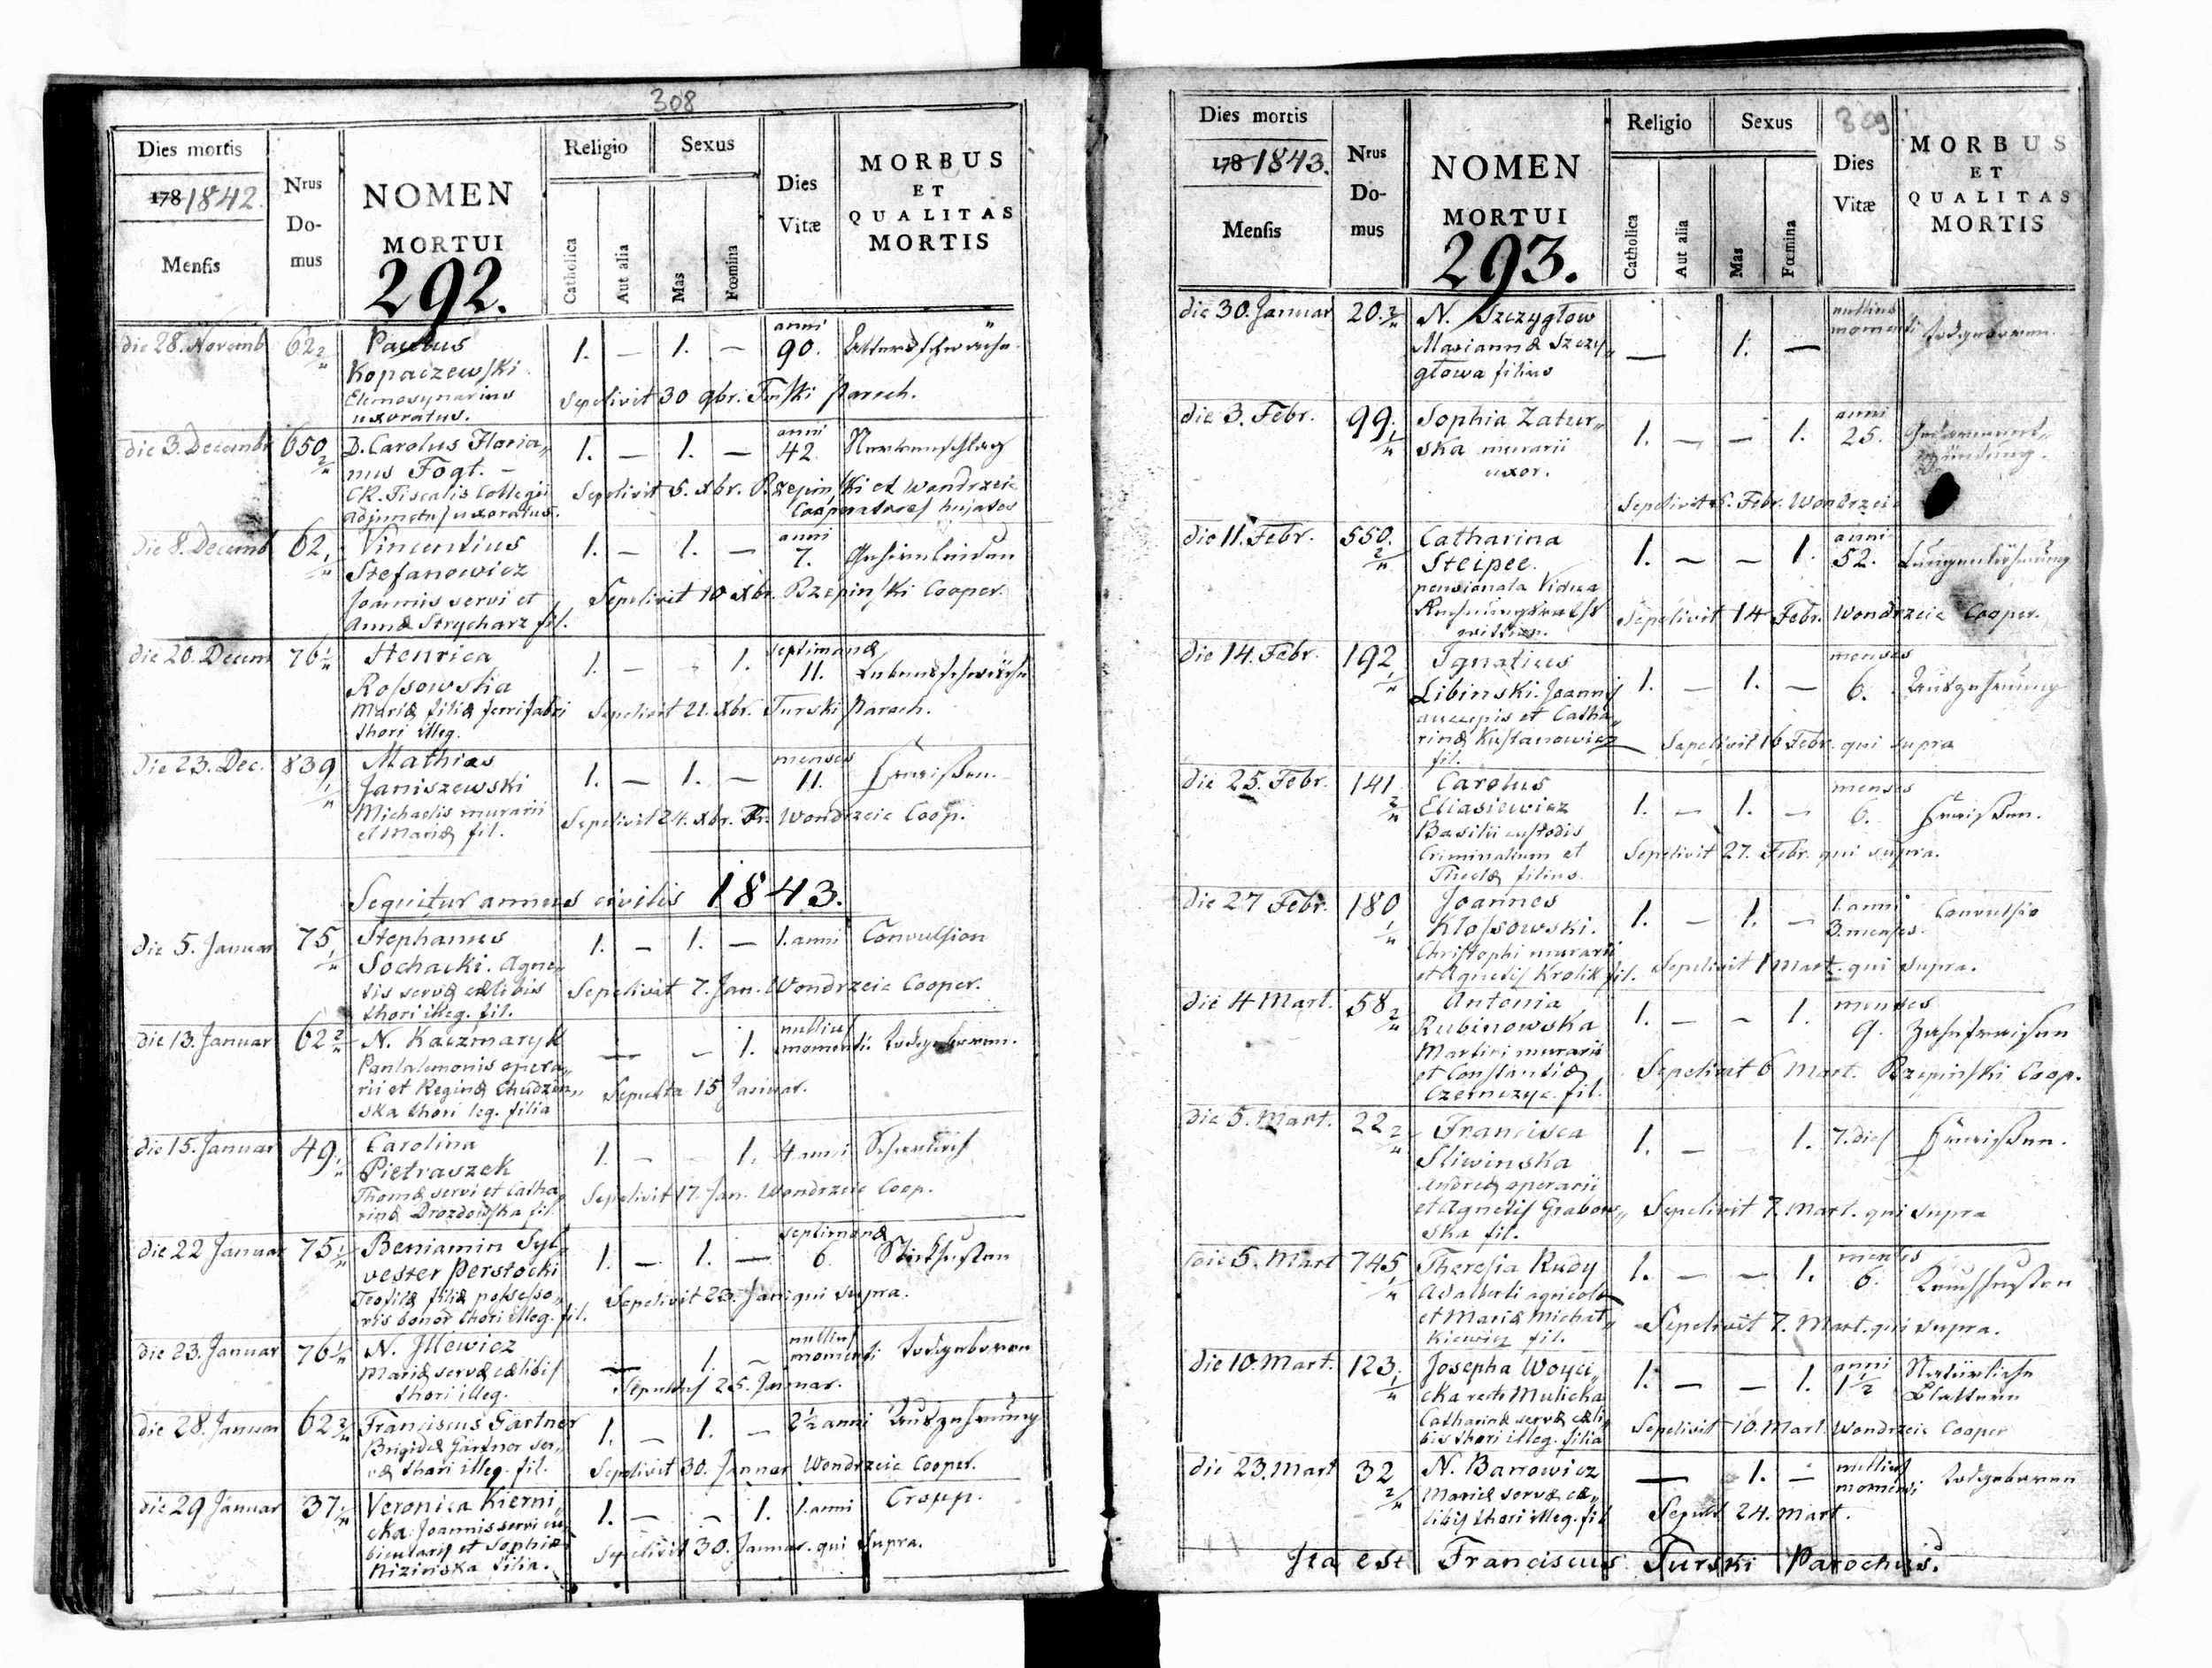 308
Dies mortis
178 1842.
Mensis
Nrus Do-mus
NOMEN
MORTUI
292.
Religio
Catholica
Aut alia
Sexus
Mas
Fœmina
Dies
Vitæ
MORBUS
ET
QUALITAS
MORTIS
die 28. Novemb 62 2/II Paulus 1. — 1. — anni 90. Altersschwäche
Kopaczewski
Elemosynarius Sepelivit 30 9br. Turski Paroch.
uxoratus.
die 3. Decembr 650 2/II D. Carolus Floria„ 1. — 1. — anni 42. Nervenschlag
nus Fogt. —
CK. Fiscalis Collegii Sepelivit 5. xbr. Rzepinski et Wondrzeic
adjunctus uxoratus. Cooperatores hujates
die 8. Decemb 62 1/II Vincentius 1. — 1. — anni 7. Gehirnleiden
Stefanowicz
Joannis servi et Sepelivit 10 xbr. Rzepinski Cooper.
Annæ Strycharz fil.
die 20. Decem 76 1/II Henrica 1. — 1. septimanæ 11. Lebensschwäche
Rossowska
Mariæ filiæ ferrifabri Sepelivit 21. xbr. Turski Paroch.
thori illeg.
die 23. Dec. 839 1/II Mathias 1. — 1. — menses 11. Fraißen.
Janiszewski
Michaelis murarii Sepelivit 24. xbr. Wondrzeic Coop.
et Mariæ fil.
Sequitur annus civilis 1843.
die 5. Januar 75 1/II Stephanus 1. — 1. — 1. anni Convulsion
Sochacki. Agne„
tis servæ cælibis Sepelivit 7. Jan. Wondrzeic Cooper.
thori illeg. fil.
die 13. Januar 62 2/II N. Kaczmaryk — — 1. nullius momenti. todgeboren.
Pantalemonis opera„
rii et Reginæ Chudzin„ Sepulta 15 Januar.
ska thori leg. filia
die 15. Januar 49 1/II Carolina 1. — — 1. 4 anni Scharlach
Pietraszek
Thomæ servi et Catha„ Sepelivit 17. Jan. Wondrzeic Coop.
rinæ Drozdowska fil.
die 22 Januar 75 1/II Beniamin Syl„ 1. — 1. — septimanæ 6. Stickhusten
vester Perstocki
Teofilæ filiæ possesso„ Sepelivit 23. Jan: qui supra.
ris bonor thori illeg. fil.
die 23. Januar 76 1/II N. Jllewicz — 1. — nullius momenti todgeboren
Mariæ servæ cælibis Sepultus 25. Januar.
thori illeg.
die 28. Januar 62 2/II Franciscus Gärtner 1. — 1. — 2 1/2 anni Auszehrung
Brigidæ Gärtner ser„
væ thori illeg. fil. Sepelivit 30. Januar Wondrzeic Cooper.
die 29 Januar 37 1/II Veronica Kierni„ 1. — — 1. 1. anni Croup.
cka Joannis servi cu„
bicularis et Sophiæ Sepelivit 30. Januar. qui supra.
Nizinska filia.
309
Dies mortis
178 1843.
Mensis
Nrus Do-mus
NOMEN
MORTUI
293.
Religio
Catholica
Aut alia
Sexus
Mas
Fœmina
Dies
Vitæ
MORBUS
ET
QUALITAS
MORTIS
die 30. Januar 20. 2/II N. Szczygłow — 1. — nullius momenti todgeboren.
Mariannæ Szczy„
głowa filius
die 3. Febr. 99. 1/II Sophia Zatur„ 1. — — 1. anni 25.
ska murarii
uxor.
Sepelivit 5. Febr. Wondrzeic
die 11. Febr. 550. 2/II Catharina 1. — — 1. anni 52. Lungenlähmung
Steipee.
pensionata Vidua
Rechnungsraths Sepelivit 14 Febr. Wondrzeic Cooper.
die 14. Febr. 192 1/II Ignatius 1. — 1. — menses 6. Auszehrung
Libinski. Joannis
aucupis et Catha„
rinæ Kustanowicz Sepelivit 16 Febr. qui supra
fil.
die 25. Febr. 141 2/II Carolus 1. — 1. — menses 6. Fraißen.
Eliasiewicz
Basilii custodis
Criminalium et Sepelivit 27. Febr. qui supra.
Theclæ filius.
die 27 Febr. 180 1/II Joannes 1. — 1. — 1. anni 3. menses. Convulsio
Klossowski.
Christophi murarii
et Agnetis Krolik fil. Sepelivit 1 Mart. qui supra.
die 4 Mart. 58 2/II Antonia 1. — — 1. menses 9. Zahnfraisen
Rubinowska
Martini murarii
et Constantiæ Sepelivit 6 Mart. Rzepinski Coop.
Czernczyc fil.
die 5. Mart. 22 2/II Francisca 1. — 1. 7. dies Fraißen.
Sliwinska
Andreæ operarii
et Agnetis Grabow„ Sepelivit 7. Mart. qui supra
ska fil.
die 5. Mart 745 1/II Theresia Rudy 1. — — 1. menses 6. Keuchhusten
Adalberti agricolæ
et Mariæ Michał„ Sepelivit 7. Mart. qui supra.
kiewicz fil.
die 10. Mart. 123. 1/II Josepha Woyci„ 1. — — 1. anni 1 1/2 Natürliche
cka recte Mulicka Blattern
Catharinæ servæ cæli„ Sepelivit 10. Mart. Wondrzeic Cooper
bis thori illeg. filia
die 23. Mart 32 2/II N. Banowicz — 1. — nullius momenti todgeboren
Mariæ servæ cæ„
libis thori illeg. fil Sepult 24. Mart.
Ita est Franciscus Turski Parochus.